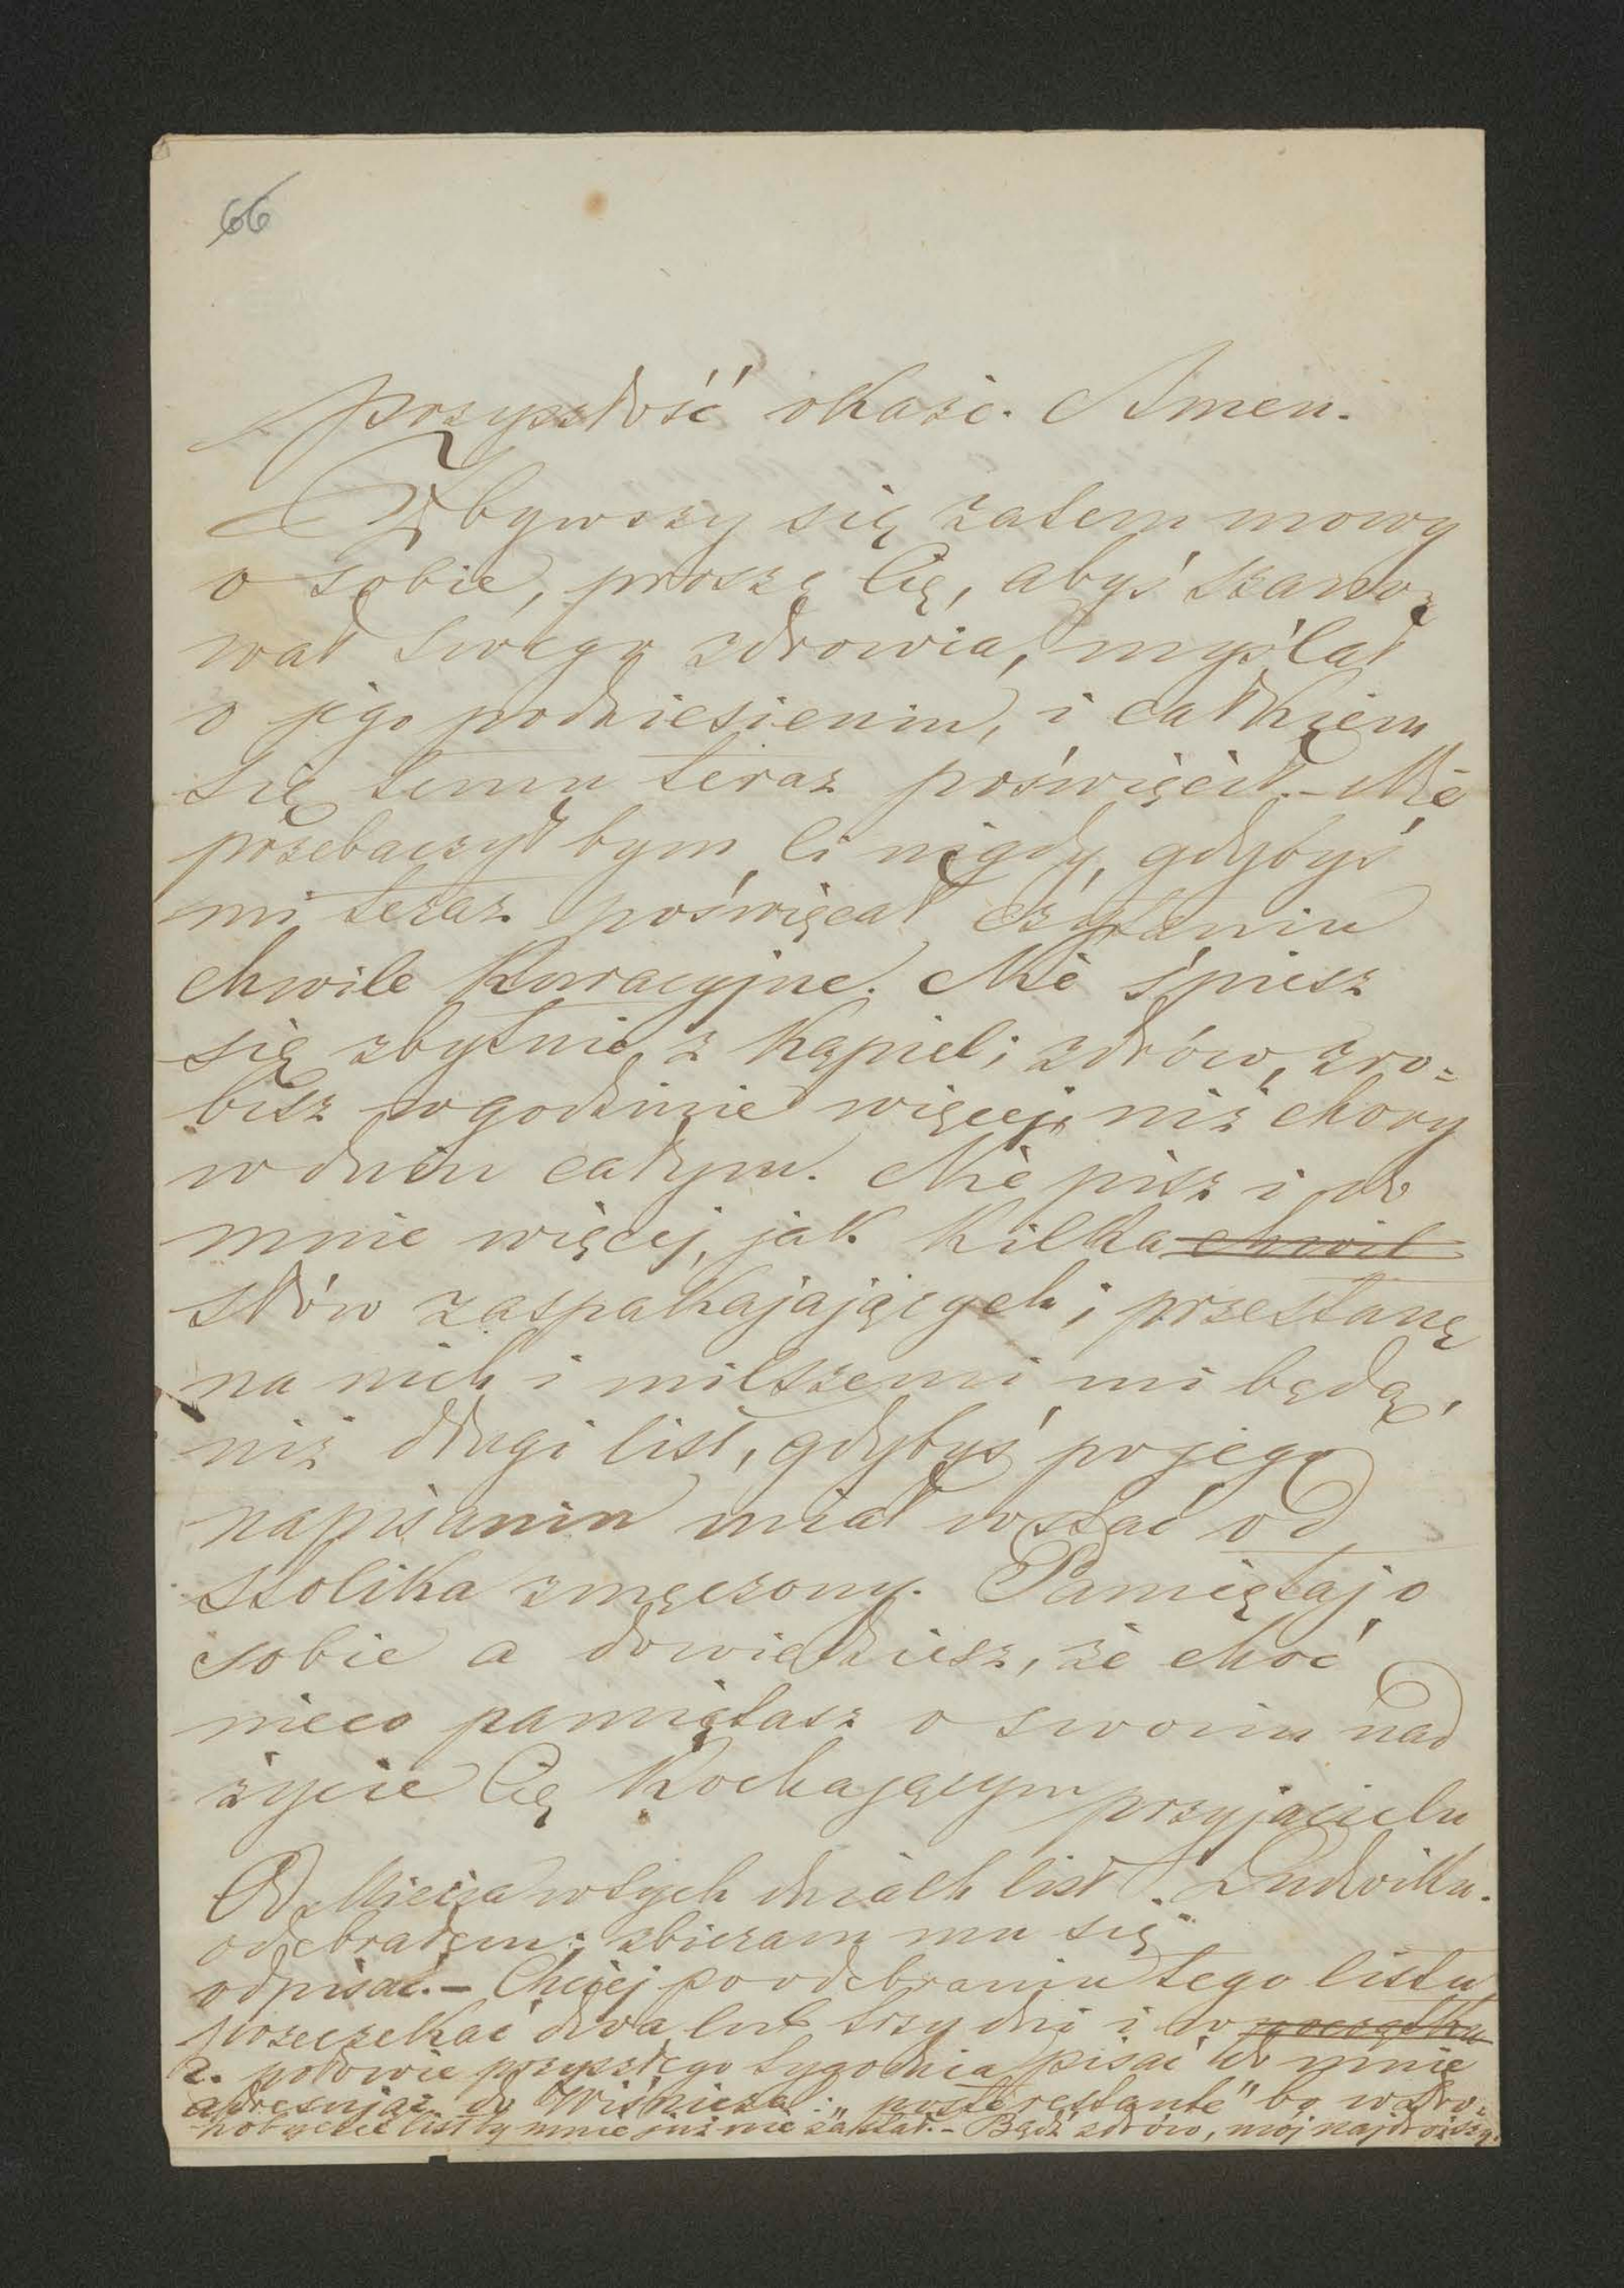 66
przyszłość okaże. Amen.
Zbywszy się zatem mowy
o sobie, proszę Cię, abyś szano=
wał swego zdrowia, myślał
o jego podniesieniu, i całkiem
się temu teraz poświęcił. – Nie
przebaczyłbym Ci nigdy, gdybyś
mi teraz poświęcał czytaniu
chwile kuracyjne. Nie śpiesz
się zbytnie z kąpieli; zdrów, zro=
bisz w godzinie więcej, niż chory
w dniu całym. Nie pisz i do
mnie więcej, jak kilka chwil
słów zaspakajających; przestanę
na nich i milszemi mi będą,
niż długi list, gdybyś po jego
napisaniu miał wstać od
stolika zmęczony. Pamiętaj o
sobie a dowiedziesz, że choć
nieco pamiętasz o swoim nad
życie Cię kochającym przyjacielu
Ludwiku.
Od Miecia w tych dniach list
odebrałem; zbieram mu się
odpisać. – Chciej po odebraniu tego listu
przeczekać dwa lub trzy dni i w początku
2. połowie przyszłego tygodnia pisać do mnie
adresując do Wiśnicza: „poste restante" bo w Dro=
hobyczu list by mnie już nie zastał. – Bądź zdrów, mój najdroższy.